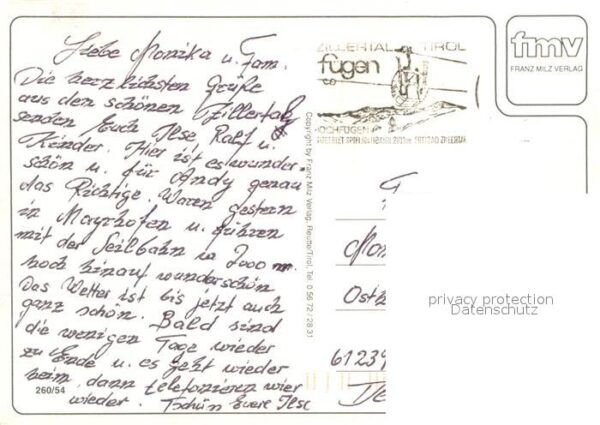 Liebe Monika u. Fam.
Die herzlichsten Grüße
aus dem schönen Zillertal
senden Euch Ilse, Ralf u.
Kinder. Hier ist es wunder-
schön u. für Andy genau
das Richtige. Waren gestern
in Mayrhofen u. fuhren
mit der Seilbahn in 2000 m
hoch hinauf wunderschön
Das Wetter ist bis jetzt auch
ganz schön. Bald sind
die wenigen Tage wieder
zu Ende u. es geht wieder
heim, dann telefonieren wier
wieder. Tschün Euere Ilse
260/54
Copyright by Franz Milz Verlag, Reutte/Tirol, Tel. 0 56 72 / 28 31
ZILLERTAL TIROL
fügen
OCHFÜGEN
fmv
FRANZ MILZ VERLAG
Mon
Osth
privacy protection
Datenschutz
61239